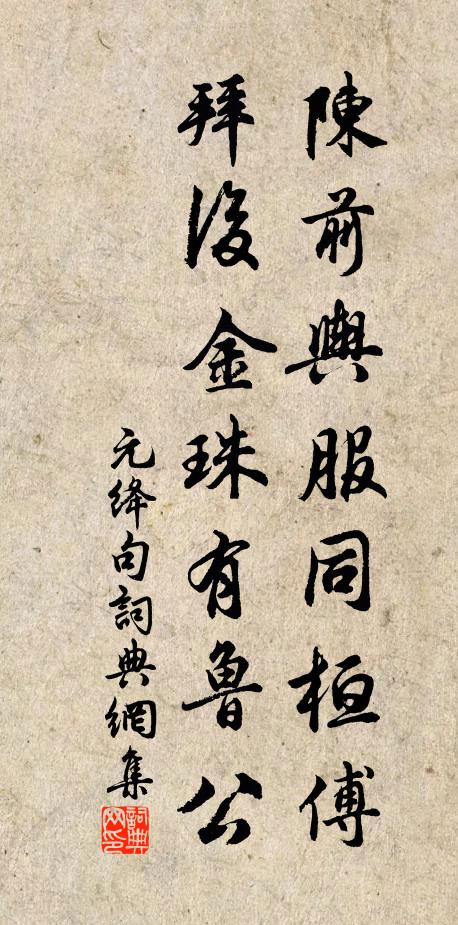 陳前輿服同桓傅
拜後金珠有魯公
元絳句詞典網集
詞典網印